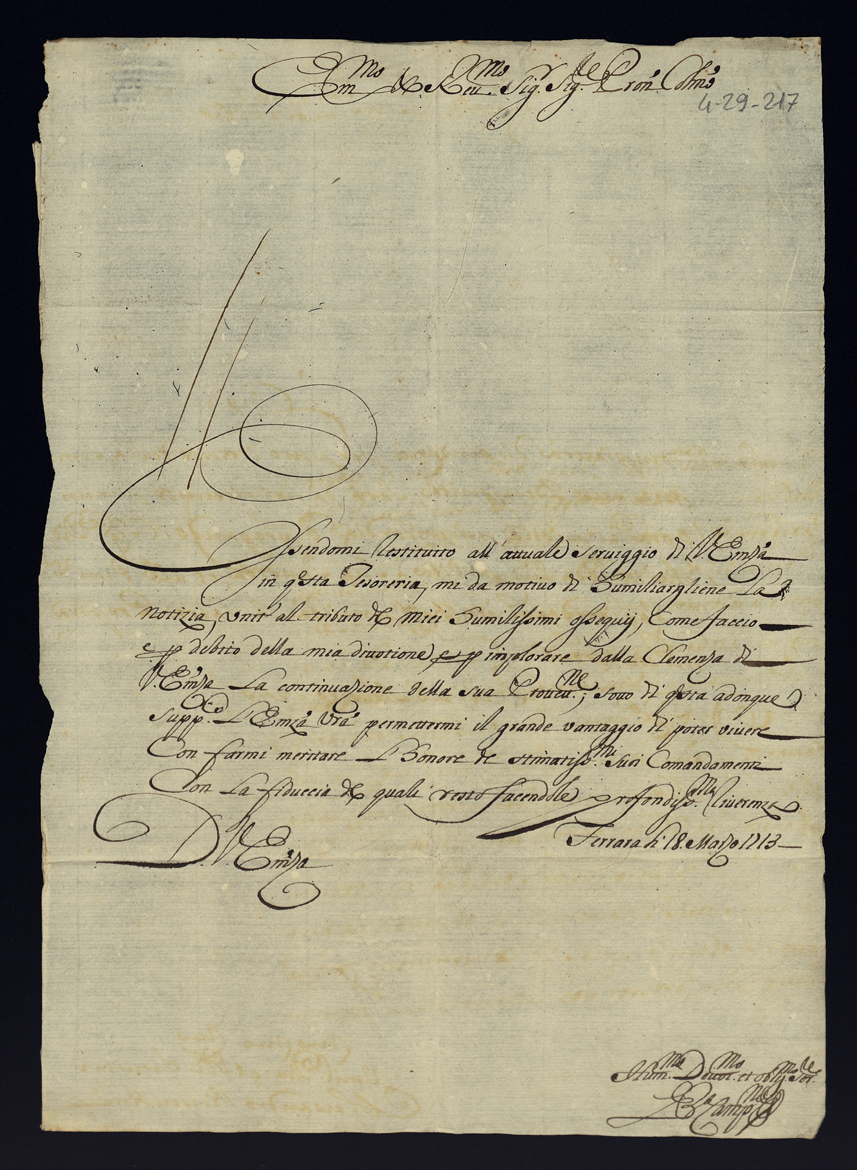 Em.mo & Reu.mo Sig.r Sig.re P̃ron. Colmo
4-29-217
Essendomi restituito all' attuale seruiggio di V. Emza
in qsta Tesoreria, mi da motivo di humiliargliene La
notizia, vnit' al tributo de Miei humilissimi ossequij, Come faccio
e p debito della mia diuotione, e p implorare dalla Clemenza di
V. Emza La continuazione della sua Protett.ne; sotto di qsta adonque
supp.co L'Emza Vra permettermi il grande vantaggio di poter viuere
Con farmi meritare L'honore de stimatiss.mi suoi Comandamenti
Con La fiducia de quali resto facendole profondiss.ma riuerenza
Ferrara li 18. Marzo 1713
D. V. Emza
Hum.mo Deuot.mo et oblig.mo Ser.re